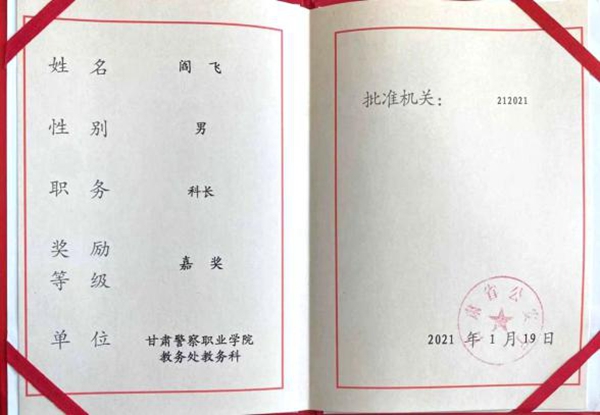 姓名 阎飞
性别 男
职务 科长
奖励
等级 嘉奖
单位 甘肃警察职业学院
教务处教务科
批准机关: 212021
肃省公安
2021 年 1 月 19 日